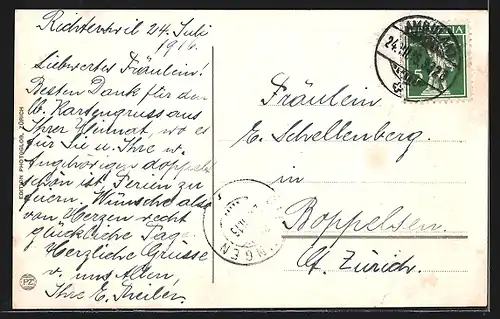 Richterswil 24. Juli
1914.
Liebwertes Fräulein!
Besten Dank für den
lb. Kartengruss aus
Ihrer Heimat, wo es
für Sie u. Ihre w.
Angehörigen doppelt
schön ist Ferien zu
feiern. Wünsche also
von Herzen recht
glückliche Tage.
Herzliche Grüsse
v. uns Allen,
Ihre E. Theiler.
Fräulein
E. Schellenberg.
in
Boppelsen.
Ct. Zürich.
EDITION PHOTOGLOB, ZÜRICH
PZ
AMBUL
24. VII
5